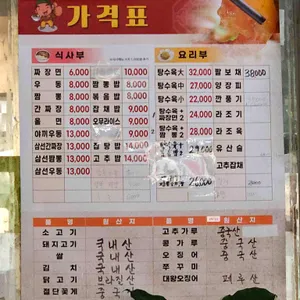 가격표
식사부
요리부
짜장면 6,000 10,000
탕수육大 32,000 팔보채 38000
우동 8,000 짬뽕밥 8,000
탕수육中 27,000 양장피
짬뽕 8,000 볶음밥 8,000
탕수육小 22,000 깐풍기
간짜장 8,000 잡채밥 8,000
탕수육+짜장면2 24,000 라조기
울면 8,000 오무라이스 9,000
라조육
야끼우동 13,000
유산슬
삼선간짜장 13,000 잡탕밥 14,000
고추잡채
삼선짬뽕 13,000 고추밥 14,000
삼선우동 13,000
품명 원산지 품명 원산지
소고기
고추가루 중국산
돼지고기 국내산
콩가루 중국산
쌀 국내산
오징어 중국산
김치 국내산
쭈꾸미
닭고기 브라질산
대왕오징어 페루산
절단꽃게 중국